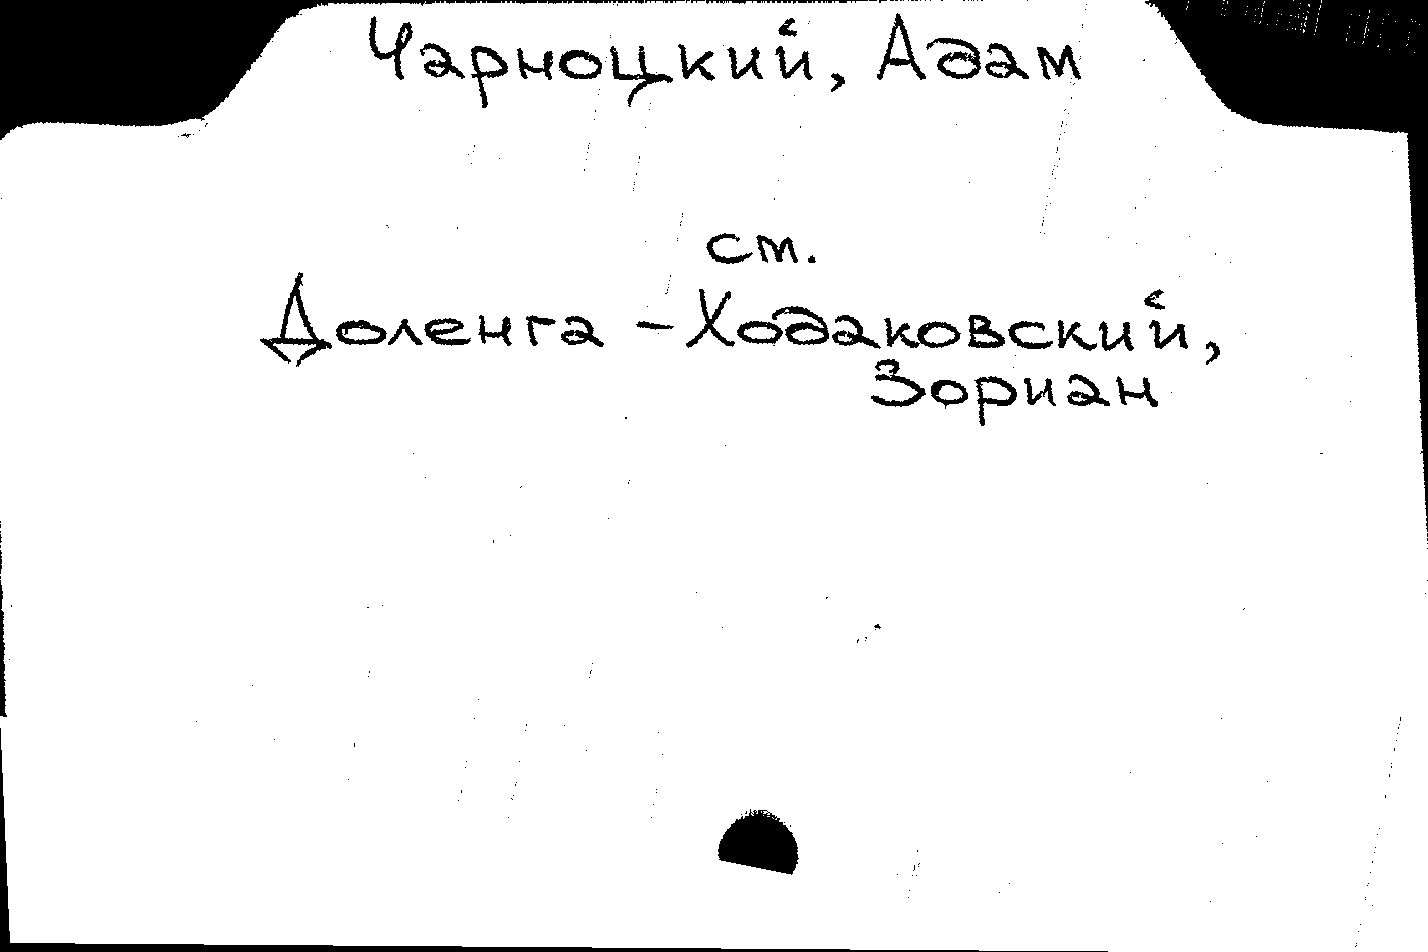 Чарноцкий, Адам
ст.
Доленга - Ходаковский,
Зориан